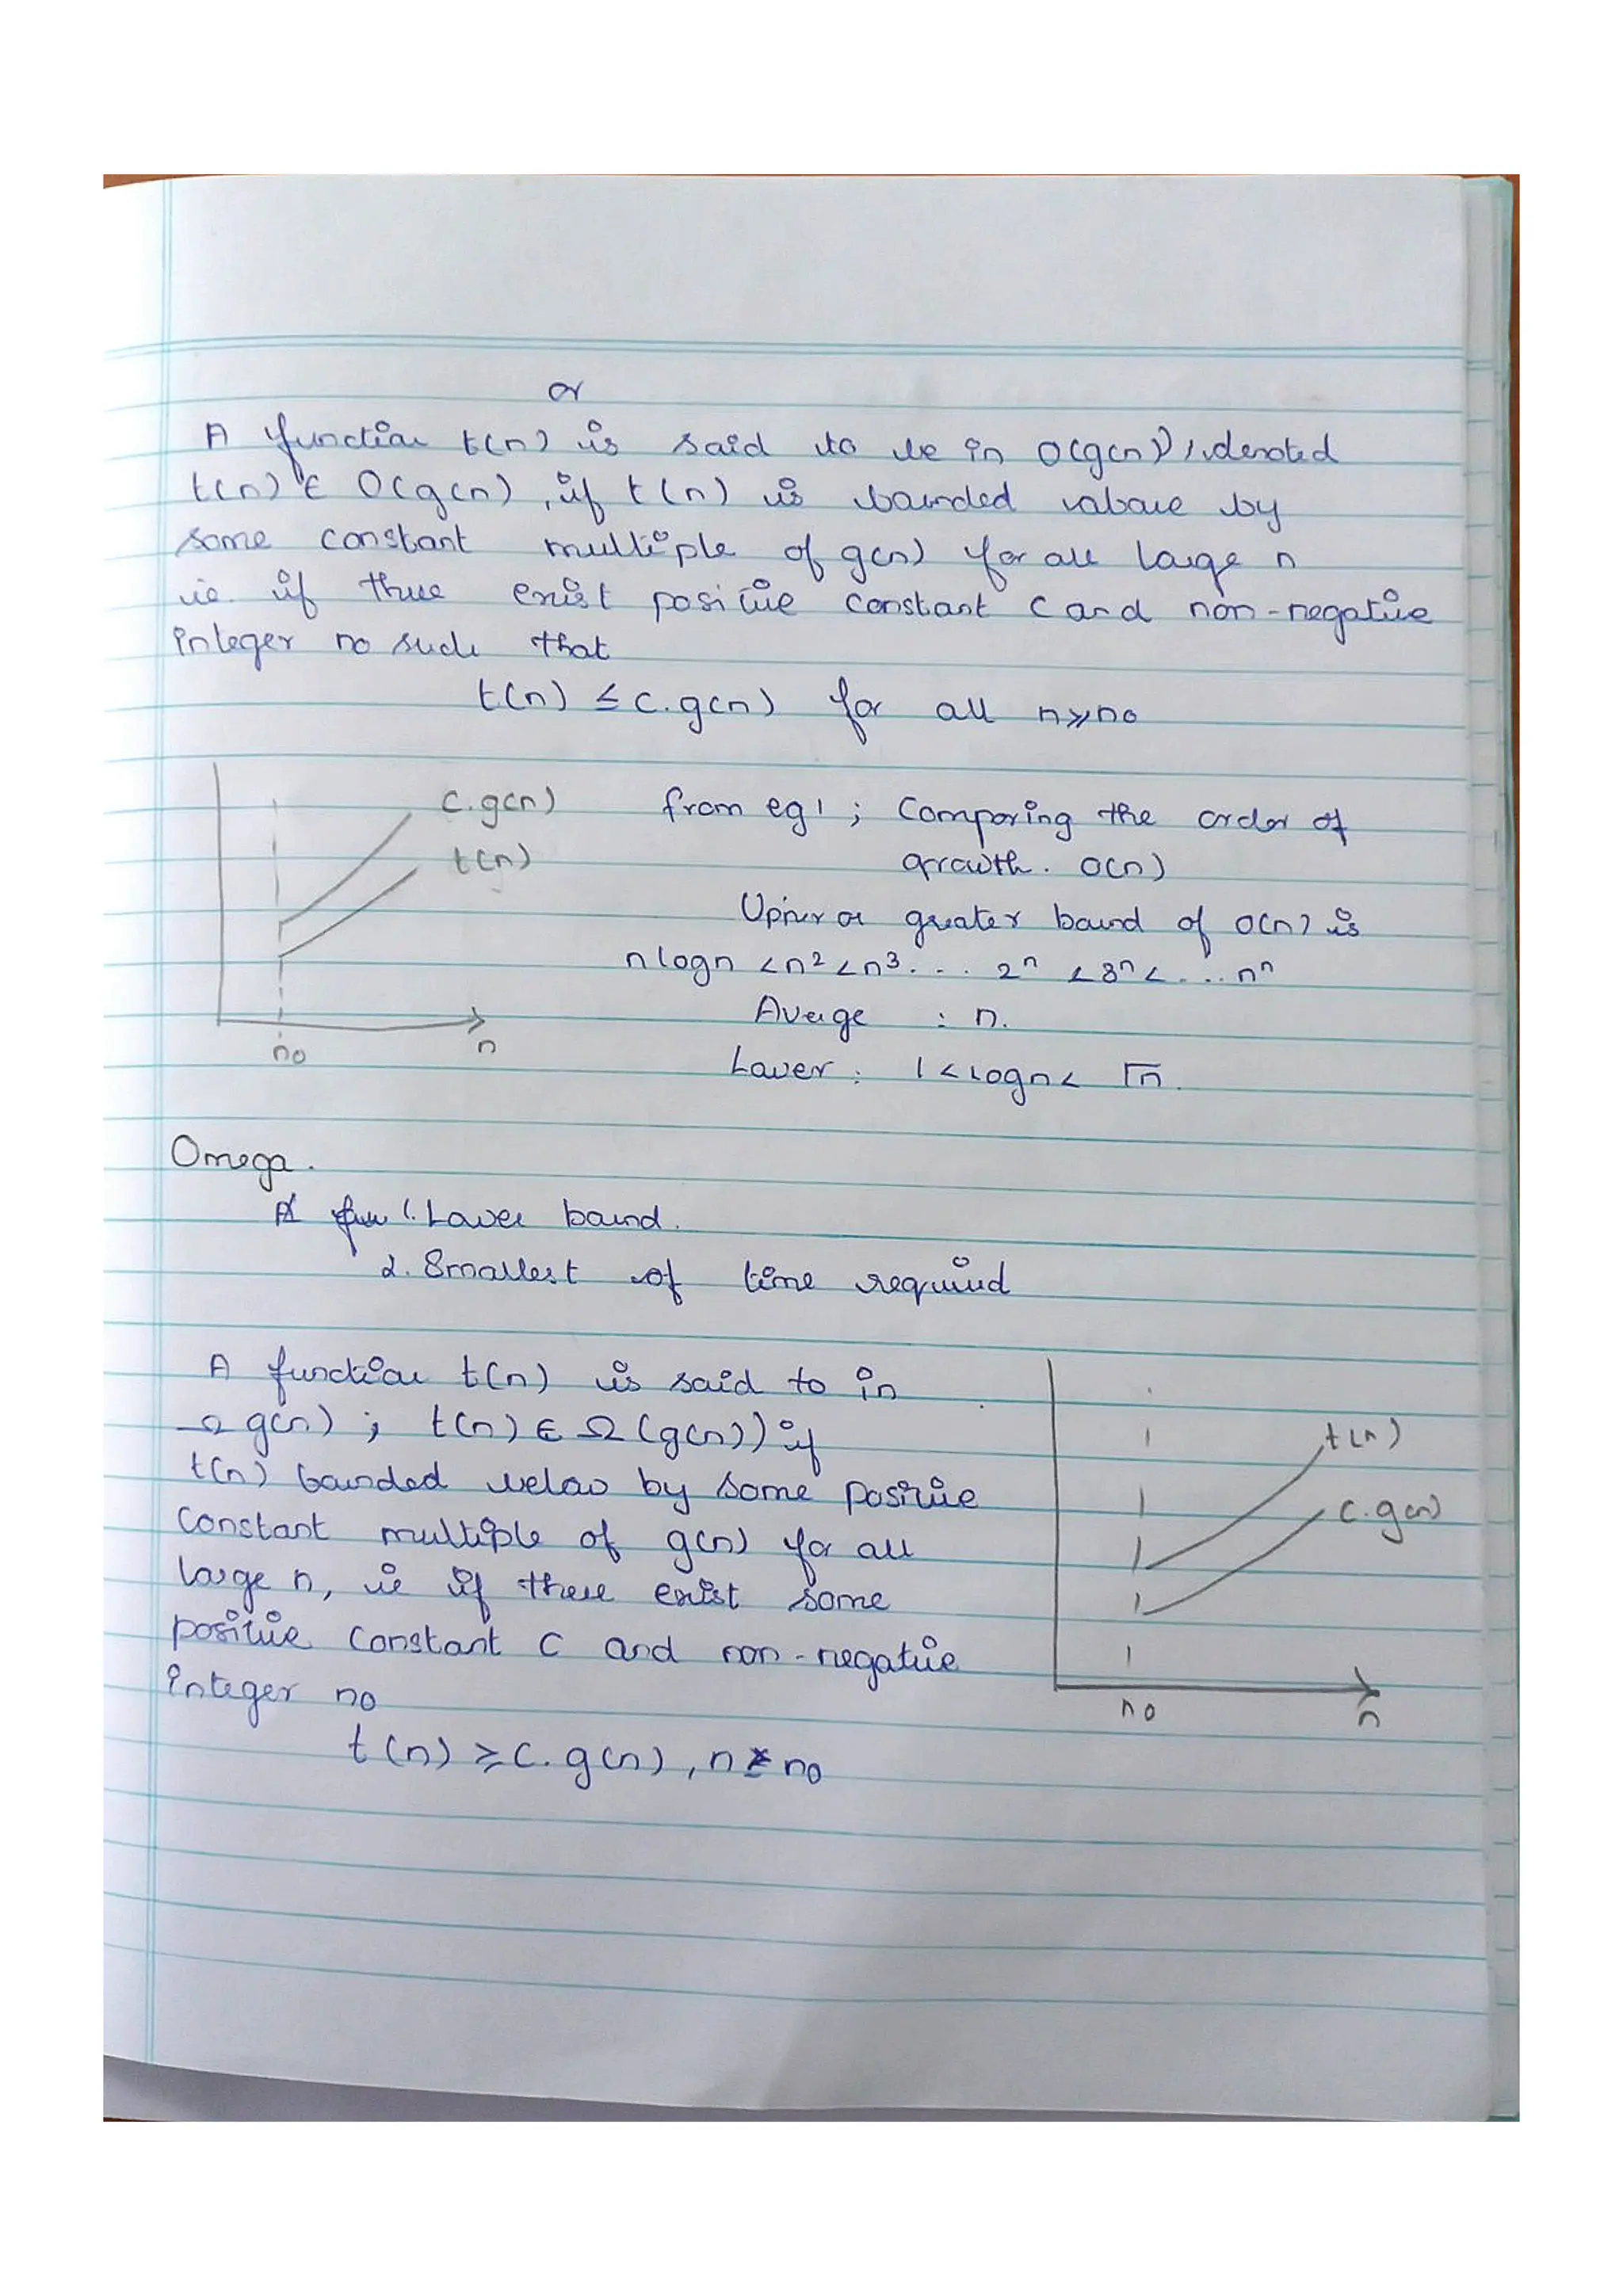 or
A function t(n) is said to be in O(g(n)), denoted
t(n) ∈ O(g(n), if t(n) is bounded above by
some constant multiple of g(n) for all large n
ie. if there exist positive constant c and non-negative
integer n0 such that
t(n) ≤ c.g(n) for all n≥n0
c.g(n)
t(n)
n0 n
from eg1 ; Comparing the order of
growth. O(n)
Upper or greater bound of O(n) is
n logn < n² < n³ . . . 2ⁿ < 3ⁿ < . . . nⁿ
Average : n.
Lower : 1 < logn < √n.
Omega.
1. Lower bound.
2. Smallest of time required
A function t(n) is said to in
Ω g(n) ; t(n) ∈ Ω (g(n)) if
t(n) bounded below by some positive
constant multiple of g(n) for all
large n, ie if there exist some
positive constant c and non-negative
integer n0
t(n) ≥ c.g(n), n ≥ n0
t(n)
c.g(n)
n0 n